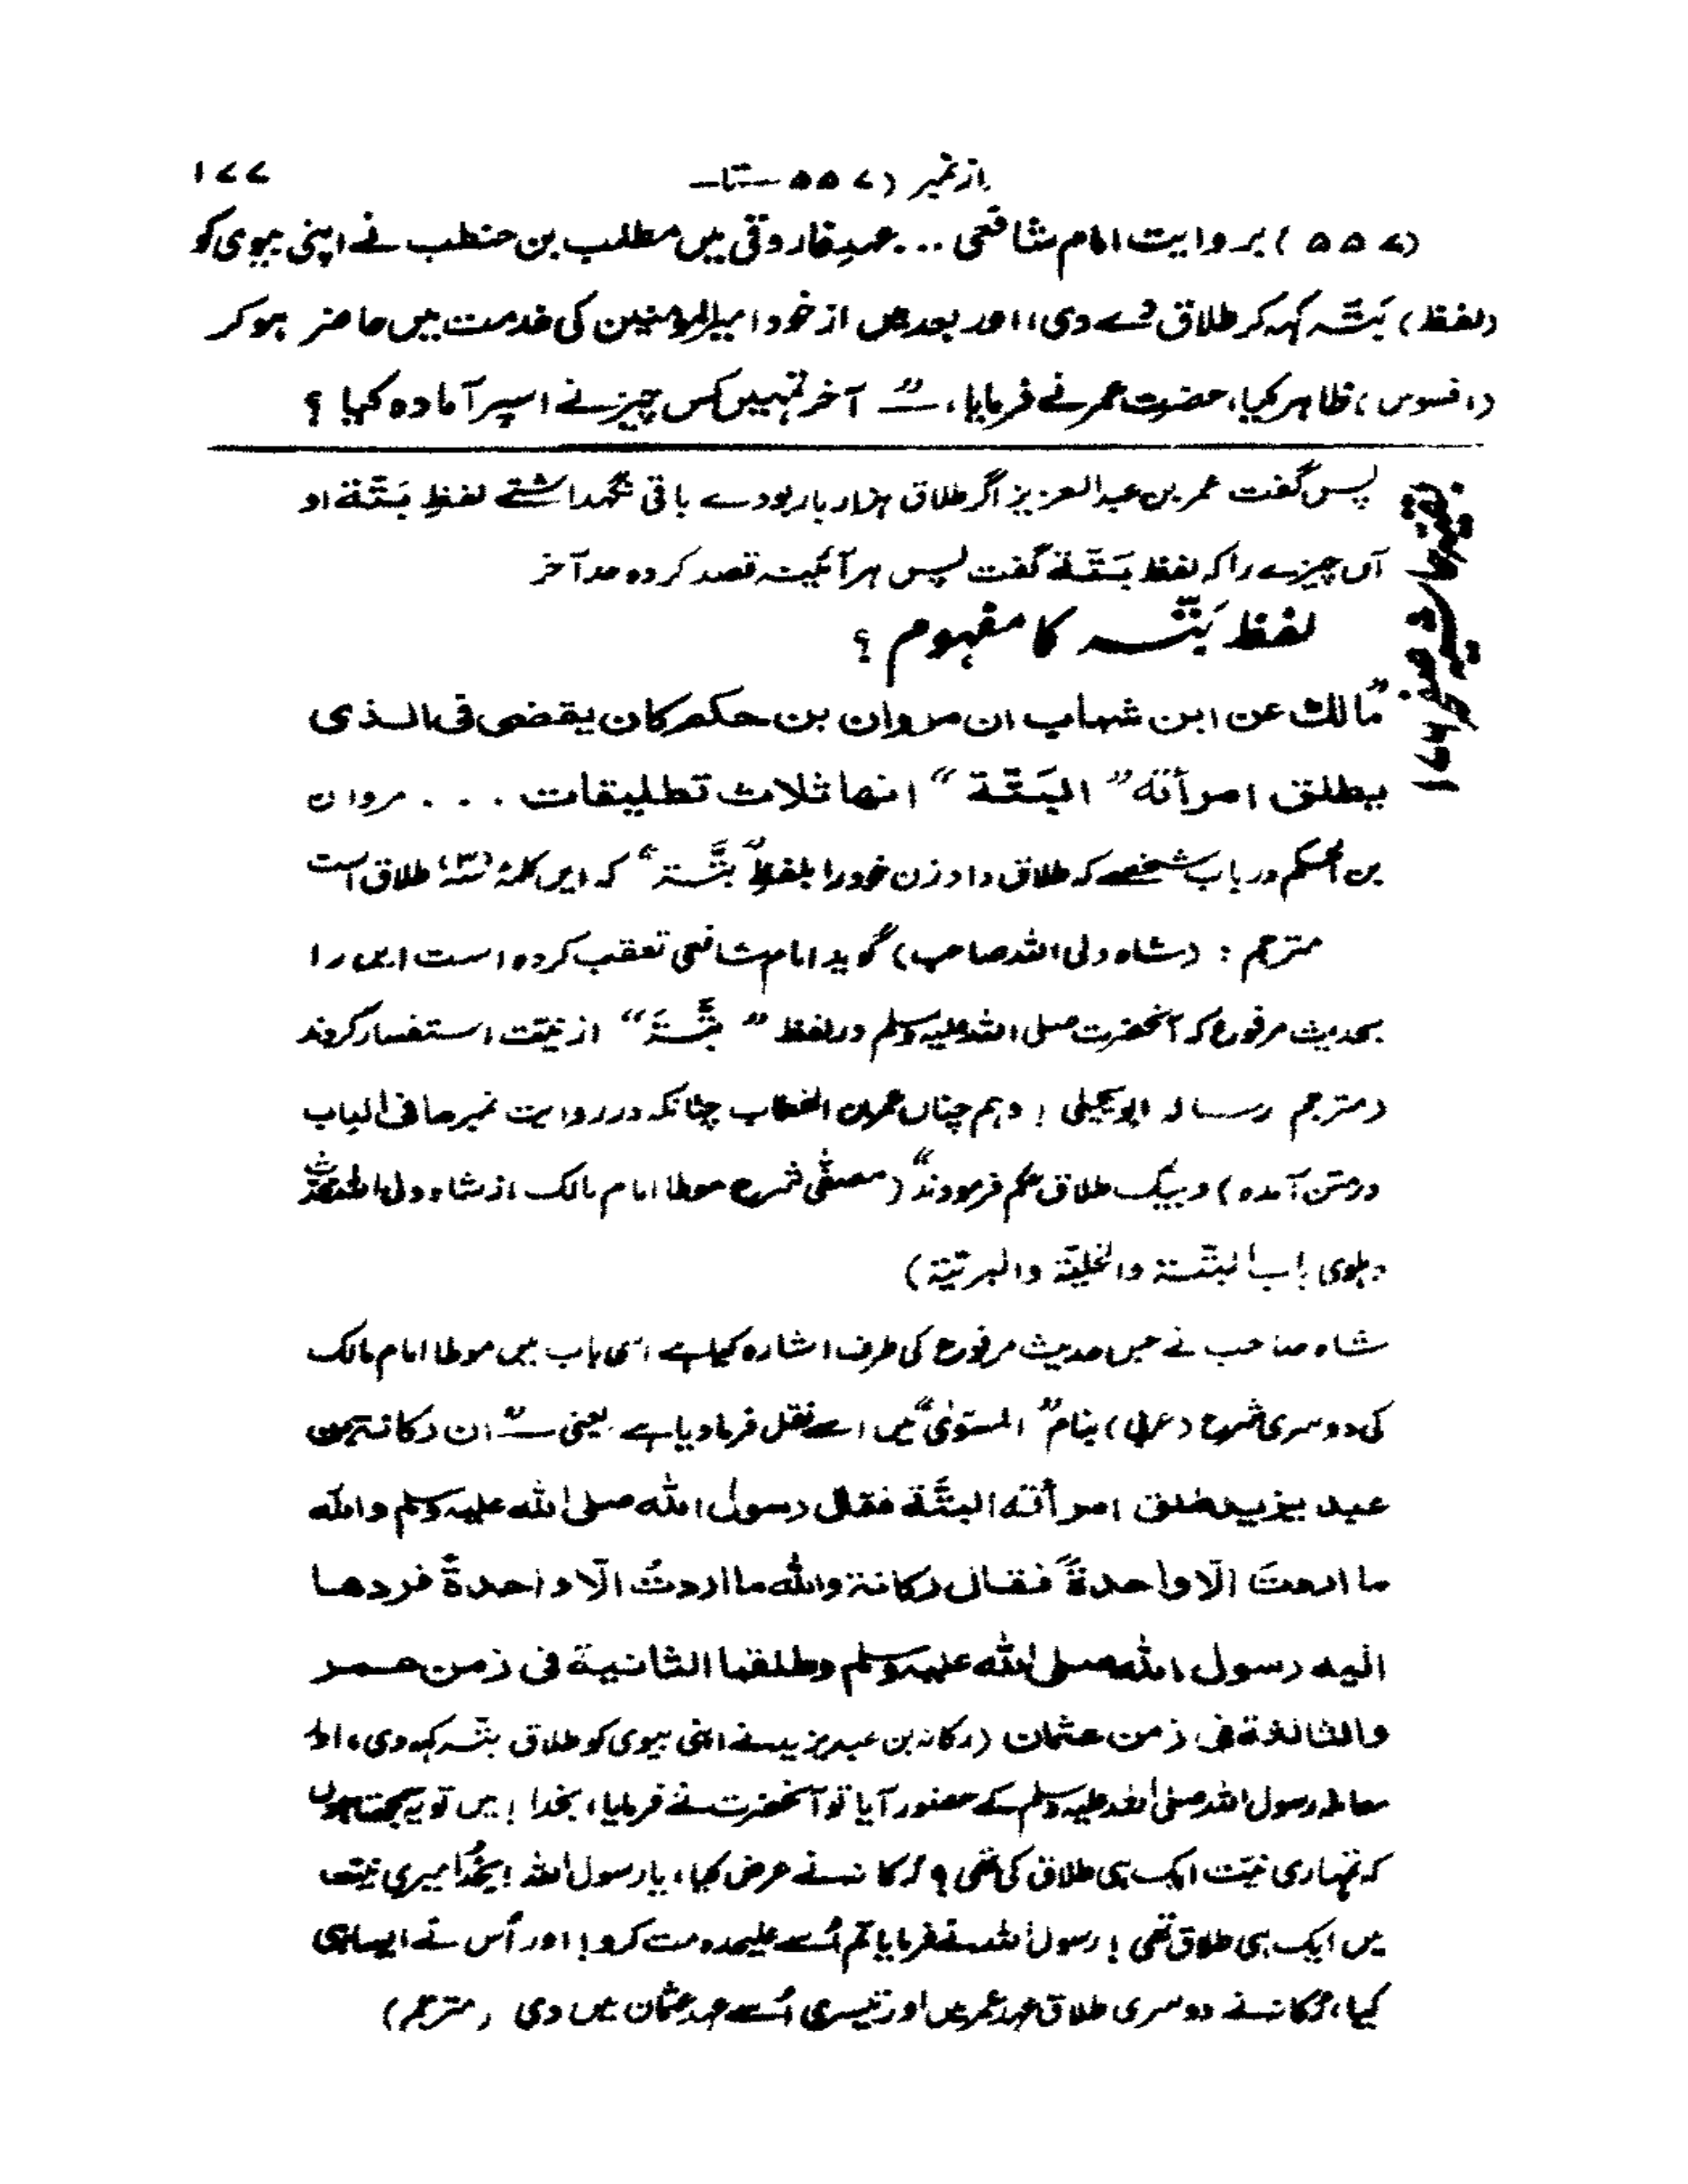 ۱۷۷
از نمبر (۵۵۷ تا
(۵۵۷) بروایت امام شافعی ... عہدِ فاروقی میں مطلب بن حنطب نے اپنی بیوی کو
(لفظ) بَتَّہ کہہ کر طلاق دے دی، اور بعد میں از خود امیرالمومنین کی خدمت میں حاضر ہو کر
(افسوس) ظاہر کیا، حضرت عمر نے فرمایا، ــ" آخر تمہیں کس چیز نے اسپر آمادہ کیا ؟
بقیہ حاشیہ صفحہ ۱۷۶
پس گفت عمر بن عبدالعزیز اگر طلاق ہزار بار بودے باقی نگہداشتے لفظِ بَتَّة او
آں چیزے را کہ لفظ بَتَّة گفت پس ہر آئینہ قصد کردہ حد آخر
لفظ بَتَّہ کا مفہوم ؟
"مالك عن ابن شهاب ان مروان بن حكم كان يقضى فى الذى
يطلق امرأته "البَتَّة" انها ثلاث تطليقات . . . مروان
بن الحکم در باب شخصے کہ طلاق داد زن خود را بلفظِ "بتَّتہ" کہ ایں کلمۂ (۳) طلاق است
مترجم : (شاہ ولی اللہ صاحب) گوید امام شافعی تعقب کردہ است ایں را
بحدیث مرفوع کہ آنحضرت صلی اللہ علیہ وسلم در لفظ " بَتَّتہَ" از نیّت استفسار کردند
(مترجم رسالہ ابو یحییٰ ! وہم چناں عمر بن الخطاب چنانکہ در روایت نمبر ما فی الباب
در متن آمدہ) و بیک طلاق حکم فرمودند" (مصفّٰی شرح موطا امام مالک از شاہ ولی اللہ محدث
دہلوی باب البتّتہ والخلیّۃ والبریّۃ)
شاہ صاحب نے جس حدیث مرفوع کی طرف اشارہ کیا ہے اسی باب میں موطا امام مالک
کی دوسری شرح (عربی) بنام "المستویٰ" میں اسے نقل فرما دیا ہے یعنی ــ" ان ركانة بن
عبد يزيد طلق امرأته البتَّة فقال رسول الله صلى الله عليه وسلم والله
ما اردتَ الّا واحدةً فقال ركانة والله ما اردتُ الّا واحدةً فردها
اليه رسول الله صلى الله عليه وسلم وطلقها الثانية فى زمن عمر
والثالثة فى زمن عثمان (رکانہ بن عبد یزید نے اپنی بیوی کو طلاق بتّہ کہہ دی، اور
معاملہ رسول اللہ صلی اللہ علیہ وسلم کے حضور آیا تو آنحضرت نے فرمایا، بخدا ! میں تو یہ سمجھتا ہوں
کہ تمہاری نیّت ایک ہی طلاق کی تھی ؟ رکانہ نے عرض کیا، یا رسول اللہ ! بخُدا میری نیّت
میں ایک ہی طلاق تھی ! رسول اللہ نے فرمایا تم اُسے علیحدہ مت کرو ! اور اُس نے ایسا ہی
کیا، رکانہ نے دوسری طلاق عہد عمر میں اور تیسری اُسے عہد عثمان میں دی (مترجم)